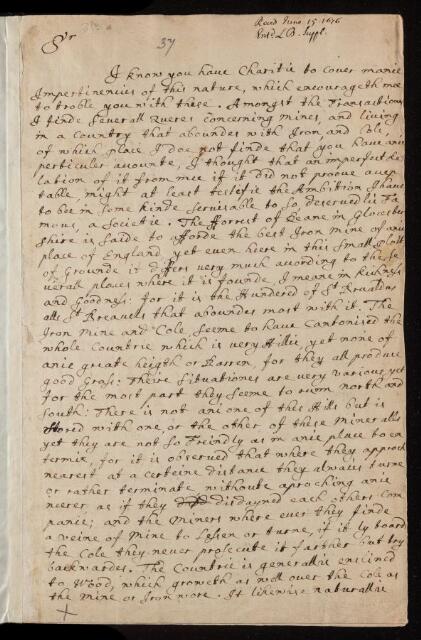 Read June 15 1676
Entd LB. Suppl.
37
Sr
I know you have Charitie to cover manie
Impertinencies of this nature, which encourageth mee
to troble you with these. Amongst the Transactions
I finde severall Queres concerning mines, and living
in a Country that aboundes with Iron and Cole,
of which place I doe not finde that you have anie
perticuler acounte, I thought that an imperfect Re
lation of it from mee if it did not proove accep
table, might at least testefie the Ambition I have
to bee in some kinde servisable to so deservedlie Fa
mous, a Societie. The fforrest of Deane in Glocester
shire is saide to afforde the best Iron mine of anie
place of England, yet even heere in this small plott
of Grounde it differs very much acording to the se
verall places where it is founde, I meane in Richness
and Goodness: for it is the Hundered of St Brevalons
als St Breavells that aboundes most with it. The
Iron mine and Cole, seeme to have Cantonised the
whole Countrie which is very Hillie yet none of
anie greate heigth or Barren, for they all produce
good Grass: Theire Situationes are very various, yet
for the most part they seeme to runn north and
South: There is not ani one of thes Hills but is
stored with one, or the other of these Mineralls
yet they are not so Freindly as in anie place to en
termix, for it is observed that where they approch
nearest at a certeine distance they alwaies turne
or rather terminate withoute aproching anie
neerer, as if they disdayned each others com
panie; and the Miners where ever they finde
a veine of Mine to Lessen or turne, if it ly toward
the Cole they never prosecute it farther but try
backwardes. The Countrie is generallie enclined
to Wood, which groweth as well over the Cole as
the Mine or Iron wore. It likewise naturallie